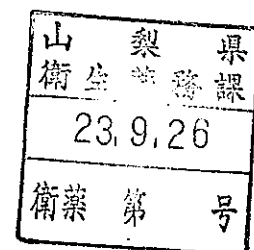 山梨県
衛生薬務課
23.9.26
衛薬 第 号